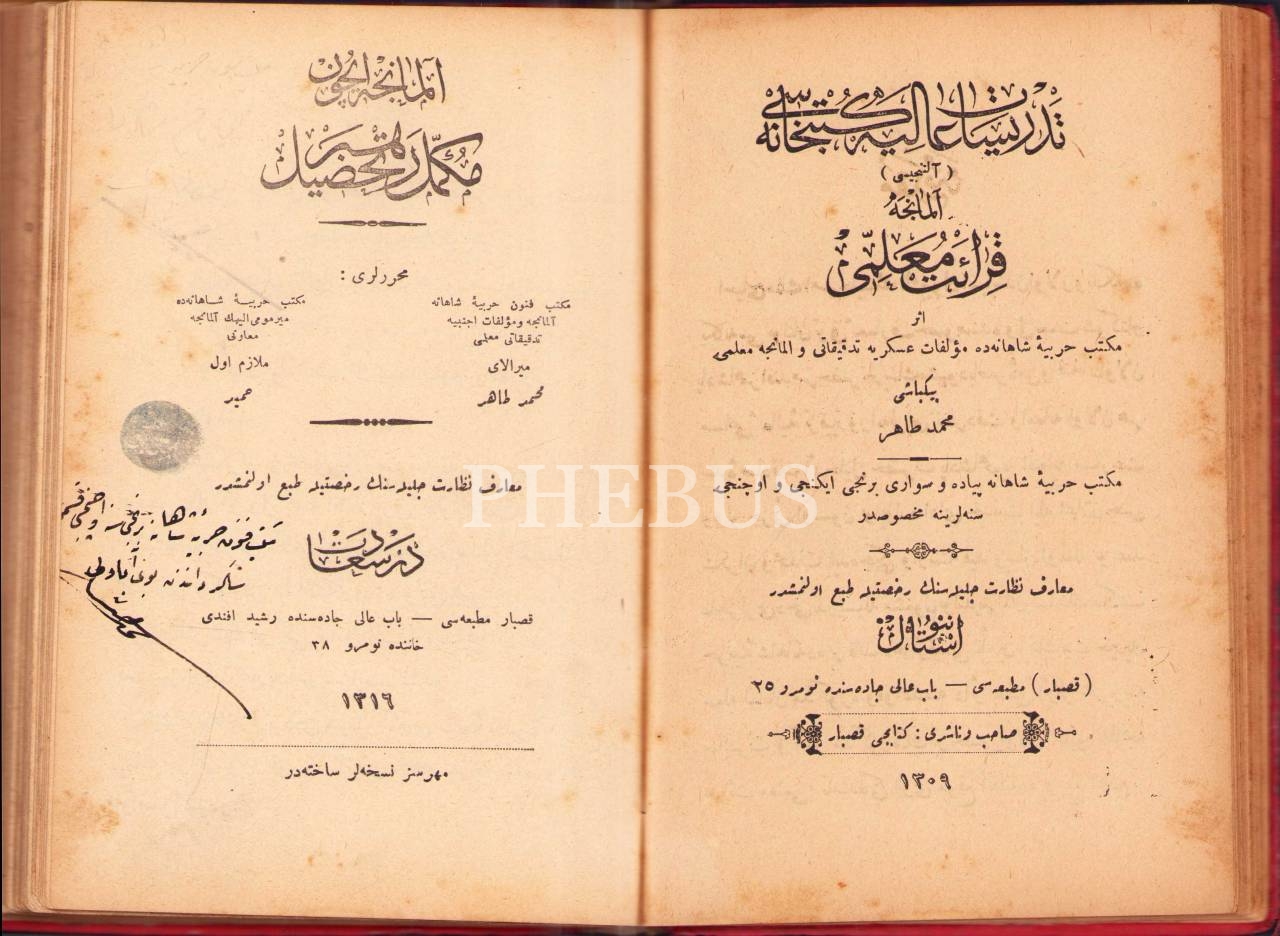 تدریسات عالیه کتبخانه‌سی
( آلتنجیسی )
آلمانجه
قرائت معلمی
اثر
مکتب حربیهٔ شاهانه‌ده مؤلفات عسکریه تدقیقاتی و المانجه معلمی
بیکباشی
محمد طاهر
مکتب حربیهٔ شاهانه پیاده و سواری برنجی ایکنجی و اوچنجی
سنه‌لرینه مخصوصدر
معارف نظارت جلیله‌سنك رخصتیله طبع اولنمشدر
استانبول
( قصبار ) مطبعه‌سی — باب عالی جاده‌سنده نومرو ٢٥
صاحب و ناشری : کتابجی قصبار
١٣٠٩
آلمانجه ایچون
مکمل رهبر تحصیل
محررلری :
مکتب فنون حربیهٔ شاهانه
آلمانجه و مؤلفات اجنبیه
تدقیقاتی معلمی
میرالای
محمد طاهر
مکتب حربیهٔ شاهانه‌ده
میرمومی الیهك آلمانجه
معاونی
ملازم اول
حمید
معارف نظارت جلیله‌سنك رخصتیله طبع اولنمشدر
درسعادت
قصبار مطبعه‌سی — باب عالی جاده‌سنده رشید افندی
خاننده نومرو ٣٨
١٣١٦
مهرسز نسخه‌لر ساخته‌در
PHEBUS